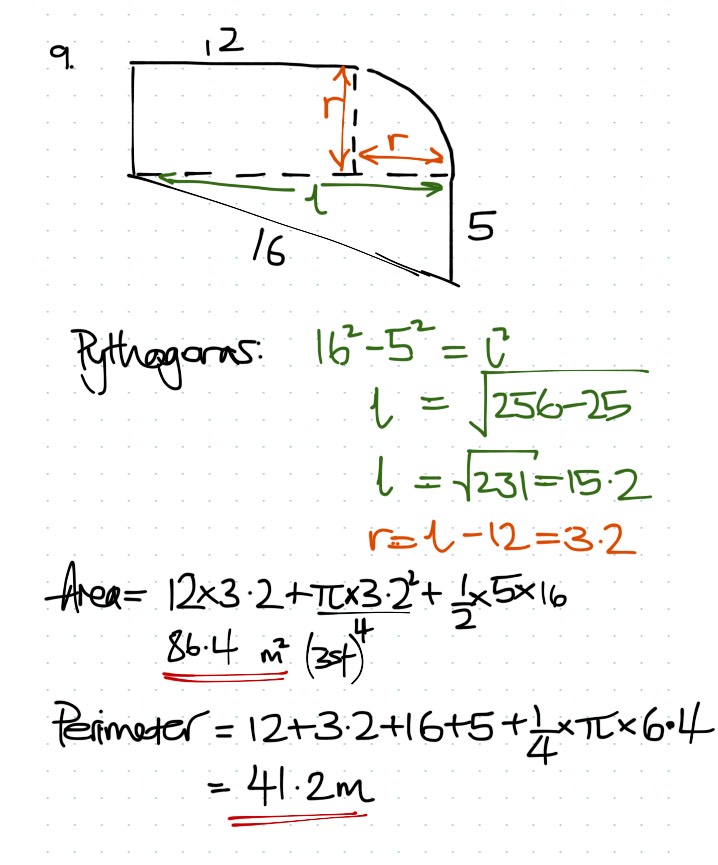 9.
12
r
r
l
16
5
Pythagoras: 16² - 5² = l²
l = √256-25
l = √231 = 15.2
r = l - 12 = 3.2
Area = 12×3.2 + π×3.2²/4 + 1/2×5×16
86.4 m² (3sf)
Perimeter = 12+3.2+16+5+1/4×π×6.4
= 41.2m